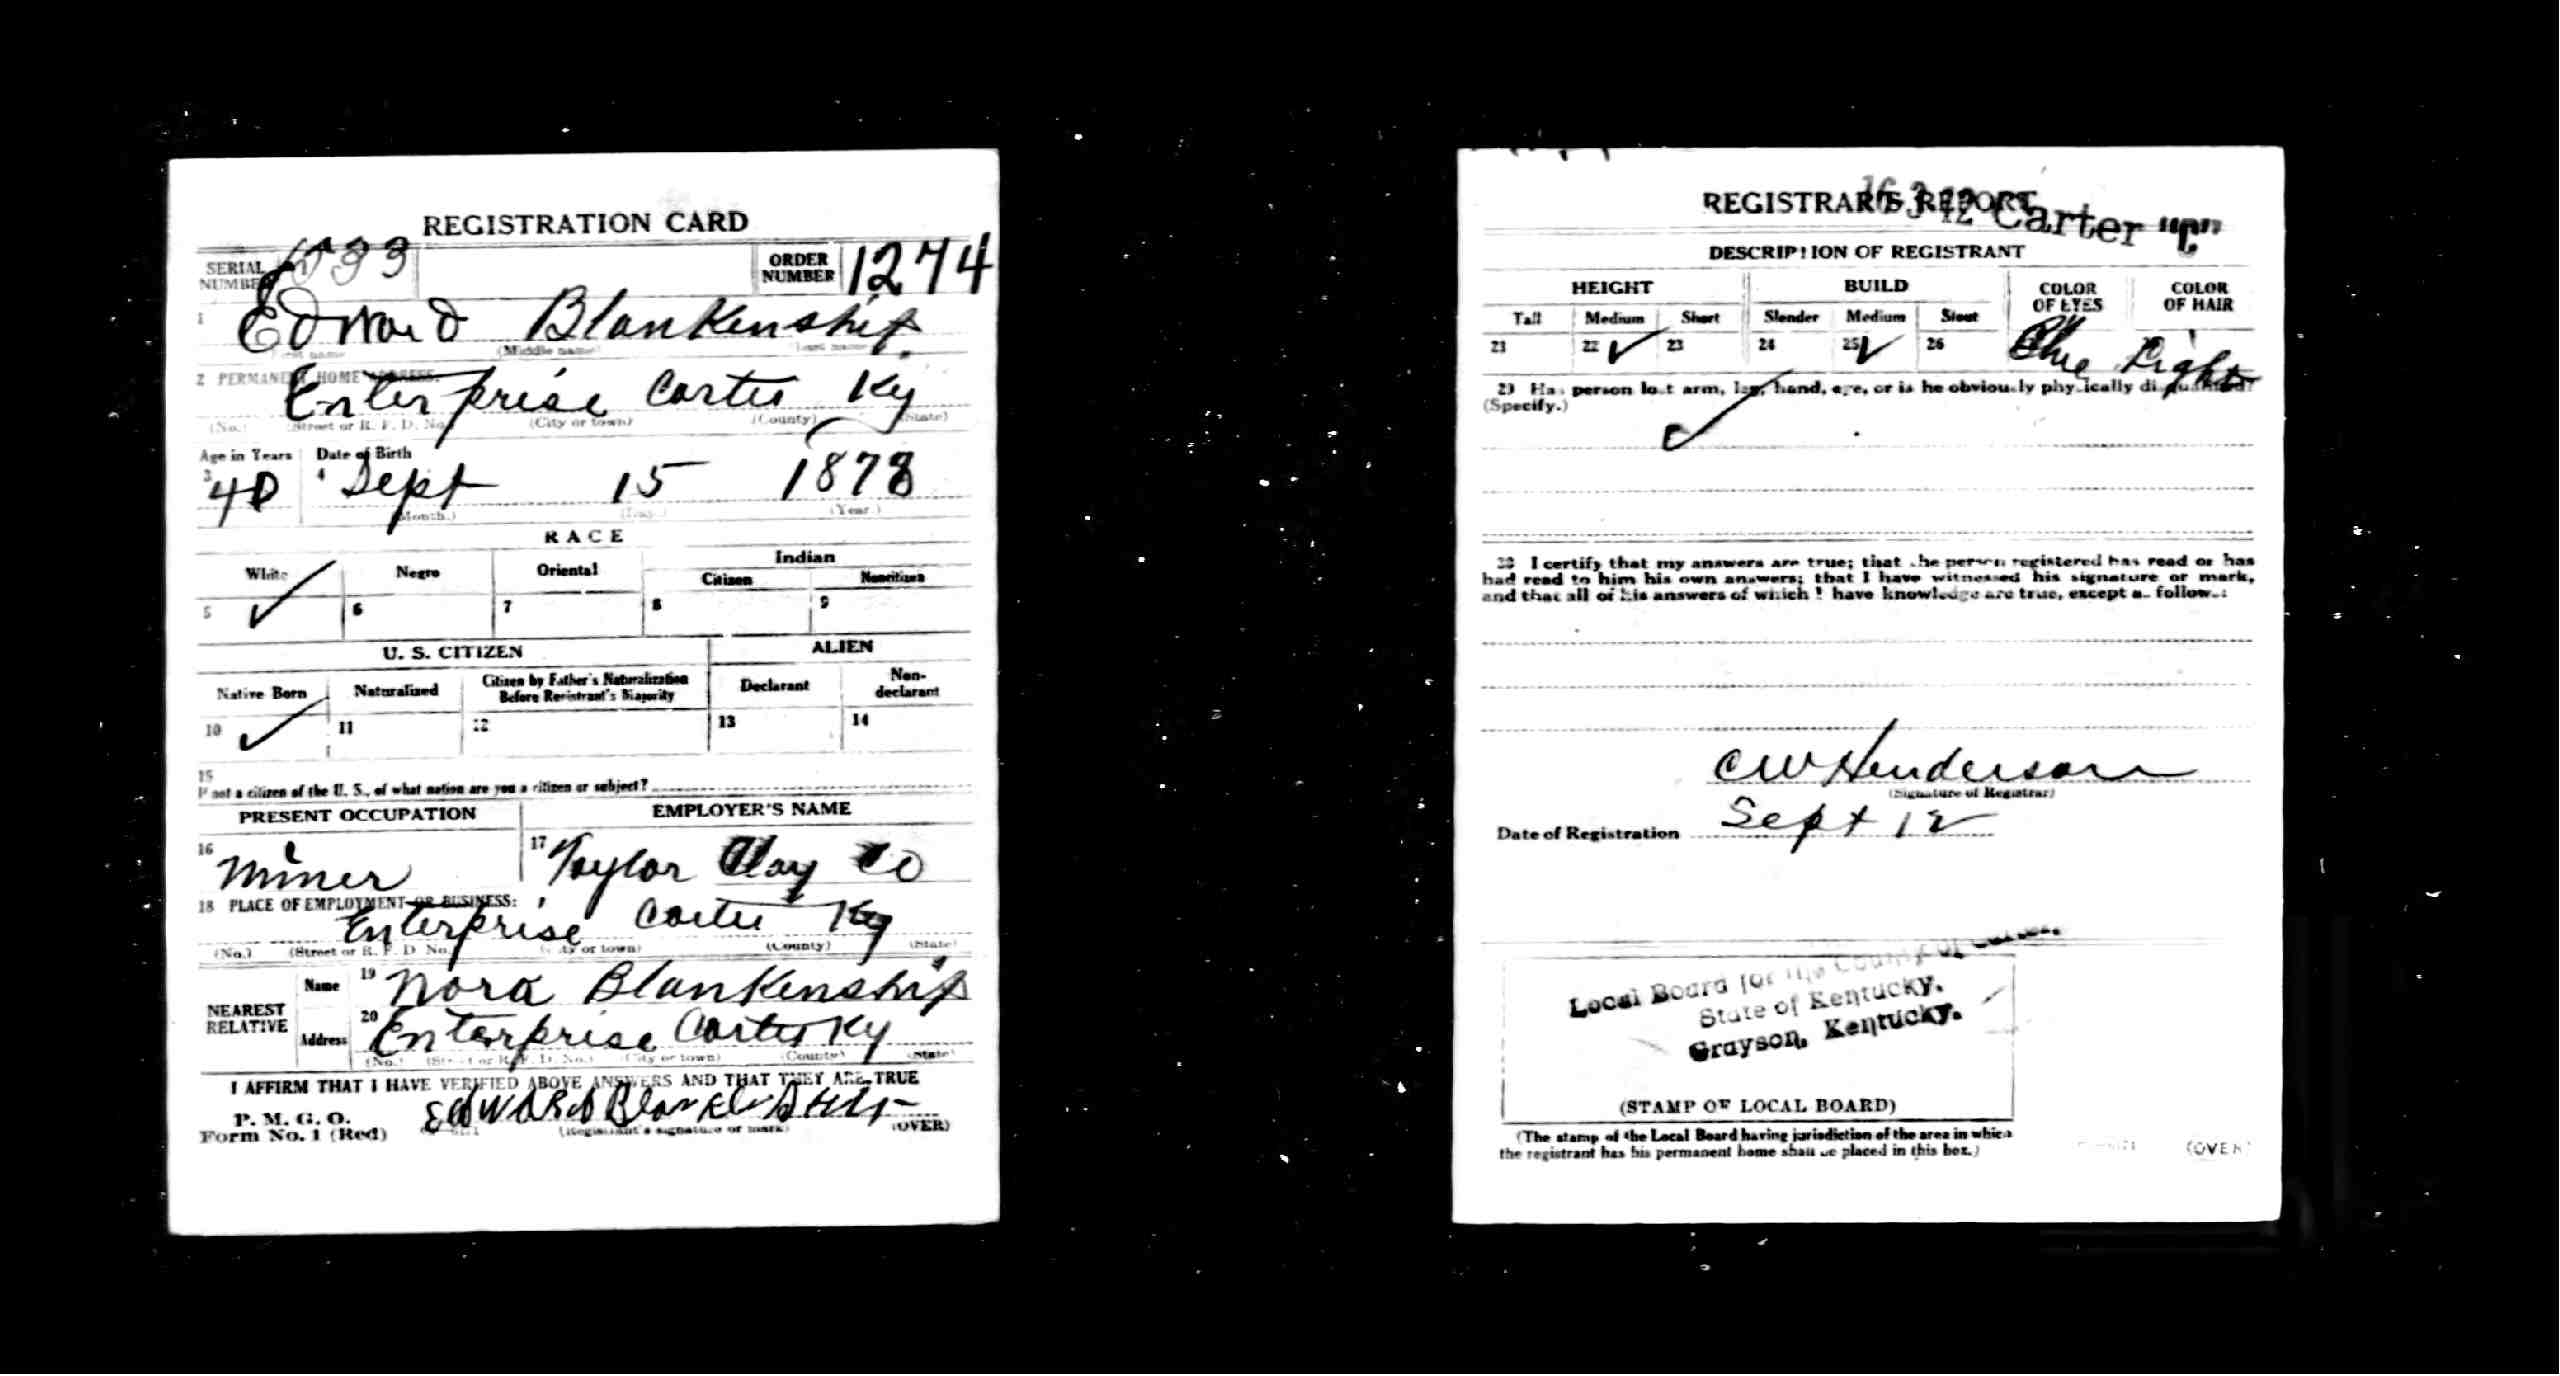 REGISTRATION CARD
SERIAL NUMBER
ORDER NUMBER 1274
1 Edward Blankenship
First name (Middle name) Last name
2 PERMANENT HOME ADDRESS:
Enterprise Carter Ky
(No.) (Street or R. F. D. No.) (City or town) (County) (State)
Age in Years Date of Birth
3 40 4 Sept 15 1878
(Month.) (Day.) (Year.)
RACE
White Negro Oriental Indian
Citizen Noncitizen
5 ✓ 6 7 8 9
U. S. CITIZEN ALIEN
Native Born Naturalized Citizen by Father's Naturalization Before Registrant's Majority Declarant Non-declarant
10 ✓ 11 12 13 14
15
If not a citizen of the U. S., of what nation are you a citizen or subject?
PRESENT OCCUPATION EMPLOYER'S NAME
16 Miner 17 Taylor Clay Co
18 PLACE OF EMPLOYMENT OR BUSINESS:
Enterprise Carter Ky
(No.) (Street or R. F. D. No.) (City or town) (County) (State)
NEAREST RELATIVE
Name 19 Nora Blankenship
Address 20 Enterprise Carter Ky
(No.) (Street or R. F. D. No.) (City or town) (County) (State)
I AFFIRM THAT I HAVE VERIFIED ABOVE ANSWERS AND THAT THEY ARE TRUE
P. M. G. O.
Form No. 1 (Red) Edward
(Registrant's signature or mark) (OVER)
REGISTRAR'S REPORT
16 3 12 Carter "C"
DESCRIPTION OF REGISTRANT
HEIGHT BUILD COLOR OF EYES COLOR OF HAIR
Tall Medium Short Slender Medium Stout
21 22 ✓ 23 24 25 ✓ 26 Blue Light
29 Has person lost arm, leg, hand, eye, or is he obviously physically disqualified?
(Specify.)
✓
30 I certify that my answers are true; that the person registered has read or has
had read to him his own answers; that I have witnessed his signature or mark,
and that all of his answers of which I have knowledge are true, except as follows:
C W Henderson
(Signature of Registrar)
Date of Registration Sept 12
Local Board for the County of Carter,
State of Kentucky.
Grayson, Kentucky.
(STAMP OF LOCAL BOARD)
(The stamp of the Local Board having jurisdiction of the area in which
the registrant has his permanent home shall be placed in this box.)
(OVER)